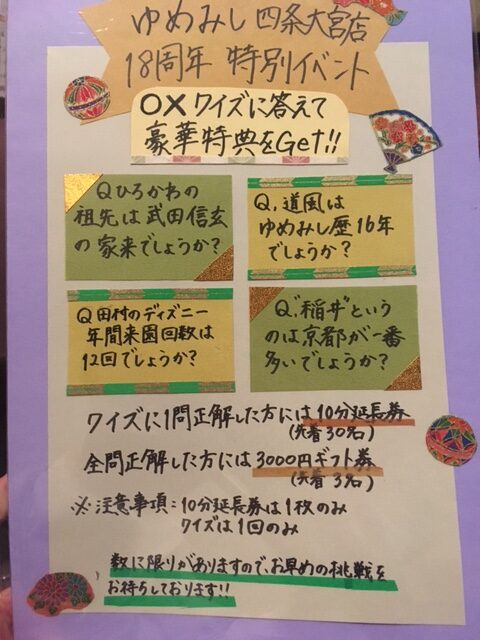 ゆめみし 四条大宮店
18周年 特別イベント
○×クイズに答えて
豪華特典をGet!!
Qひろかわの
祖先は武田信玄
の家来でしょうか?
Q.道風は
ゆめみし歴16年
でしょうか?
Q田村のディズニー
年間来園回数は
12回でしょうか?
Q"稲井"という
のは京都が一番
多いでしょうか?
クイズに1問正解した方には10分延長券
(先着30名)
全問正解した方には3000円ギフト券
(先着3名)
※注意事項:10分延長券は1枚のみ
クイズは1回のみ
数に限りがありますので、お早めの挑戦を
お待ちしております!!